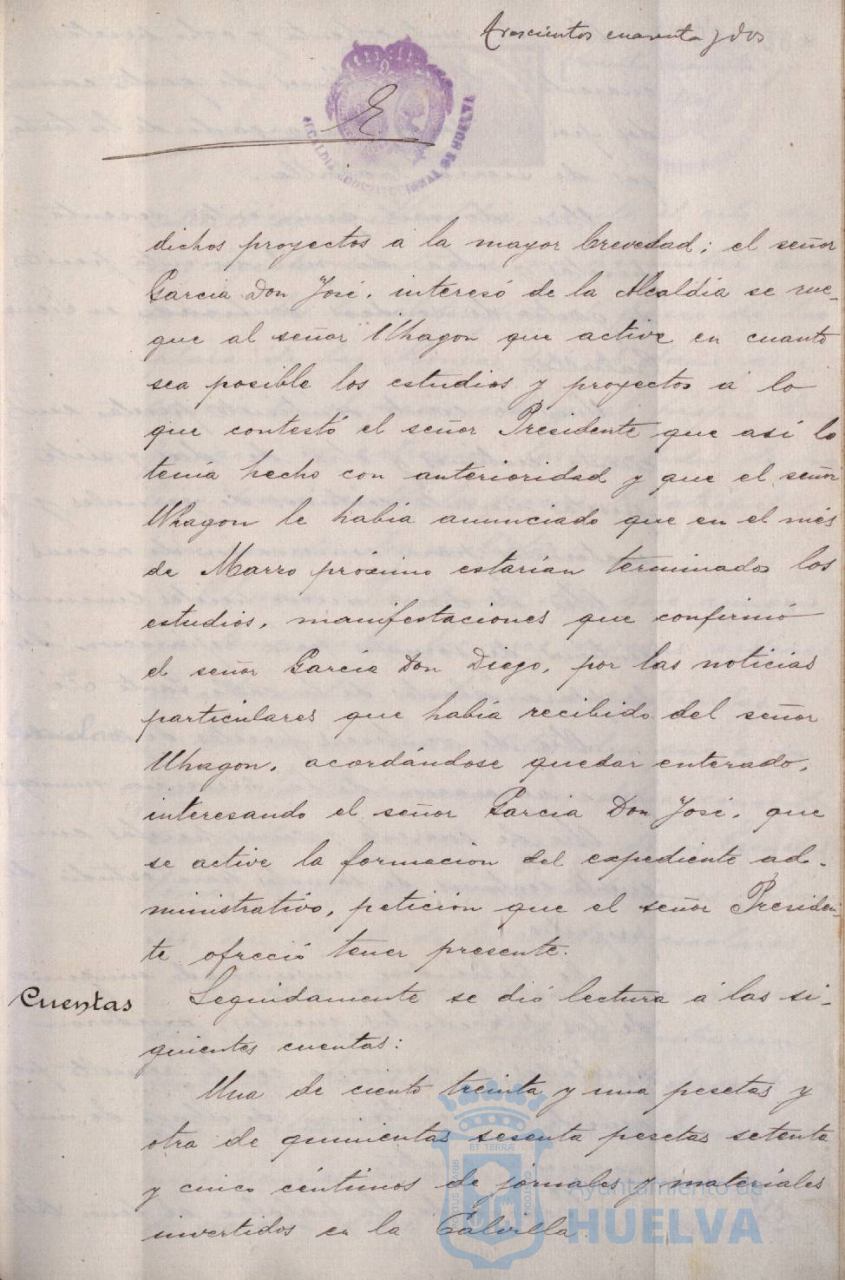 Trescientos cuarenta y dos
ALCALDIA CONSTITUCIONAL DE HUELVA
dichos proyectos á la mayor brevedad; el señor
Garcia Don José, interesó de la Alcaldía se rue-
gue al señor Uhagon que active en cuanto
sea posible los estudios y proyectos á lo
que contestó el señor Presidente que así lo
tenía hecho con anterioridad y que el señor
Uhagon le había anunciado que en el mes
de Marzo próximo estarían terminados los
estudios, manifestaciones que confirmó
el señor García Don Diego, por las noticias
particulares que había recibido del señor
Uhagon, acordándose quedar enterado,
interesando el señor Garcia Don José, que
se active la formación del expediente ad-
ministrativo, petición que el señor Presiden-
te ofreció tener presente.
Cuentas
Seguidamente se dió lectura á las si-
guientes cuentas:
Una de ciento treinta y una pesetas y
otra de quinientas sesenta pesetas setenta
y cinco céntimos de jornales y materiales
invertidos en la Calvilla.
Ayuntamiento de
HUELVA